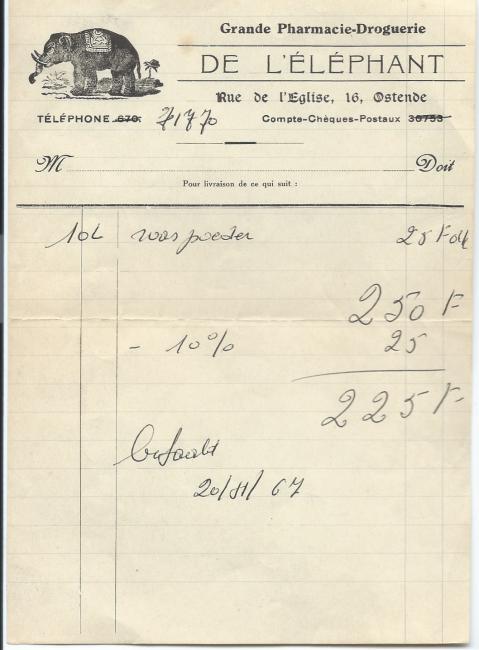 Grande Pharmacie-Droguerie
DE L'ÉLÉPHANT
Rue de l'Eglise, 16, Ostende
TÉLÉPHONE 670. 71770 Compte-Chèques-Postaux 30753
M Doit
Pour livraison de ce qui suit :
10 waspoeder 25 F
250 F
- 10% 25
225 F
20/11/67